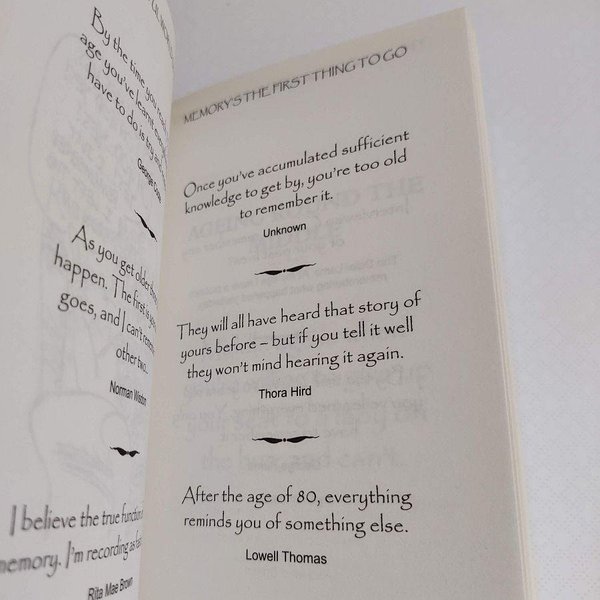 By the time you
age you've learnt
have to do is try
George
As you get older three
happen. The first is your
goes, and I can't remember
other two.
Norman Wisdom
I believe the true function
memory. I'm recording as
Rita Mae Brown
MEMORY'S THE FIRST THING TO GO
Once you've accumulated sufficient
knowledge to get by, you're too old
to remember it.
Unknown
They will all have heard that story of
yours before – but if you tell it well
they won't mind hearing it again.
Thora Hird
After the age of 80, everything
reminds you of something else.
Lowell Thomas